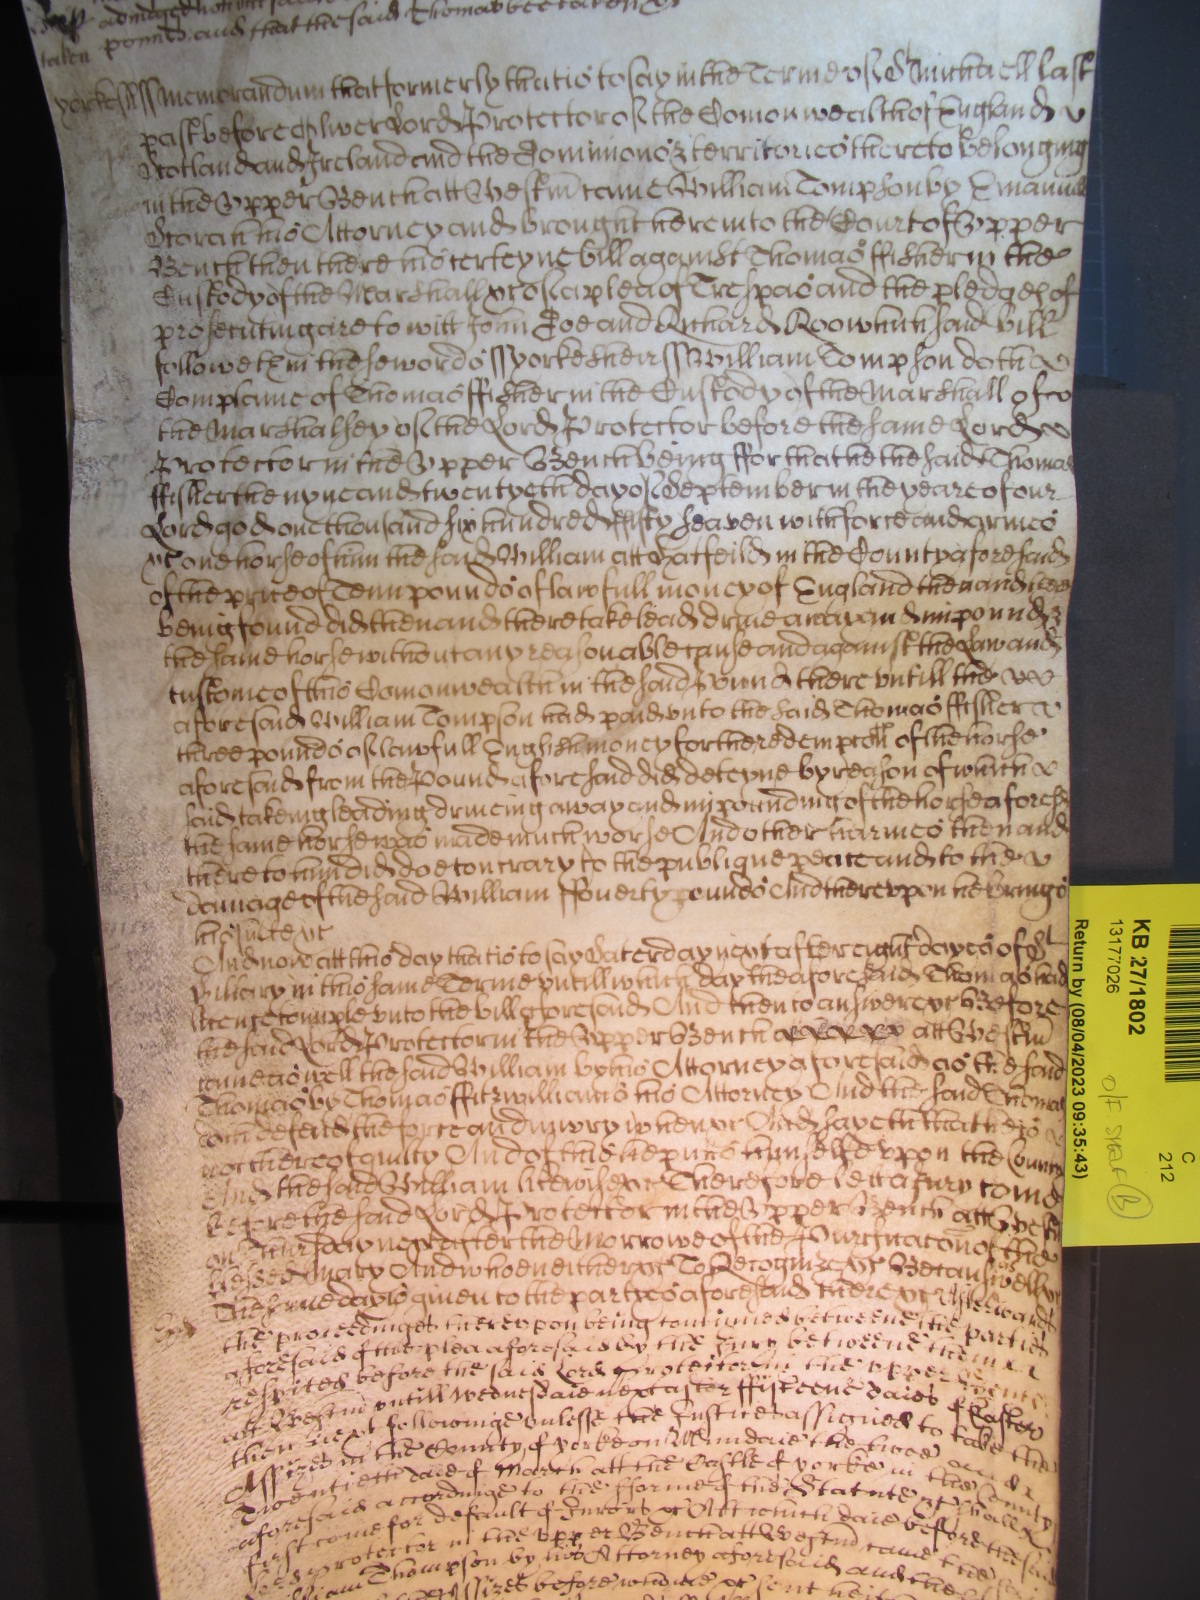 taken pound and that the said Thomas bee taken &c
yorkesh ss Memorandum that formerly that is to say in the Terme of St Michaell last
past before Oliver Lord Protector of the Comonwealth of England
Scotland and Ireland and the Dominions & territories thereto belonging
in the Upper Bench att Westm came William Tompson by Emanuel
his Attorney and brought here into the Court of Upper
Bench then there his certeyne bill against Thomas ffisher in the
Custody of the Marshall &c of a plea of Trespas and the pledges of
prosecuting are to witt John Doe and Richard Roo which said bill
followeth in these words ss yorkesheir ss William Tompson doth
Complaine of Thomas ffisher in the Custody of the Marshall of
the Marshalsey of the Lord Protector before the same Lord
Protector in the Upper Bench being ffor that he the said Thomas
ffisher the nyne and twentyeth day of September in the yeare of our
Lord god one thousand six hundred ffifty seaven with force and armes
&c one horse of him the said William att Hatfeild in the County aforesaid
of the price of Tenn pounds of lawfull money of England then and there
being found did then and there take lead drive away and impound &
the same horse without any reasonable cause and against the Law and
custome of this Comonwealth in the said pound there untill the
aforesaid William Tompson had paid unto the said Thomas ffisher
three pounds of lawfull English money for the redempcon of the horse
aforesaid from the Pound aforesaid did deteyne by reason of which
said takeing leading driveing away and impounding of the horse aforesd
the same horse was made much worse And other harmes then and
there to him did doe contrary to the publique peace and to the
damage of the said William ffourty pounds And thereupon he brings
his suite &c
And now att this day that is to say Saterday next after eight dayes of St
Hillary in this same Terme untill which day the aforesaid Thomas had
licence to imple unto the bill aforesaid And then to answere &c Before
the said Lord Protector in the Upper Bench att Westm
came as well the said William by his Attorney aforesaid as the said
Thomas by Thomas ffitzwilliams his Attorney And the said Thomas
doth defend the force and iniury when &c And sayeth that he is
not thereof guilty And of this he puts himselfe upon the Country
And the said William likewise &c Therefore let a Jury come
before the said Lord Protector in the Upper Bench att Westm
on Thursday next after the Morrowe of the Purificacon of the
blessed Mary And who neither &c To Recognize &c Because as well &c
The same day is given to the partyes aforesaid there &c Afterwards
the proceedings thereupon being continued betweene the parties
aforesaid of the plea aforesaid by the Jury betweene them
respited before the said Lord Protector in the upper bench
att Westm untill Wednesdaie next after ffifteene daies of Easter
then next followinge unlesse the Justices assigned to take the
Assizes in the County of yorke on Mundaie the two and
Twentieth daie of March att the Castle of yorke in the County
aforesaid accordinge to the fforme of the Statute &c shall
first come for default of Jurors &c Att which daie before the said
Lord protector in the upper Bench att Westm came the
William Thompson by his Attorney aforesaid and the
Assizes before whome &c sent
KB 27/1802
13177026
Return by (08/04/2023 09:35:43)
C
212